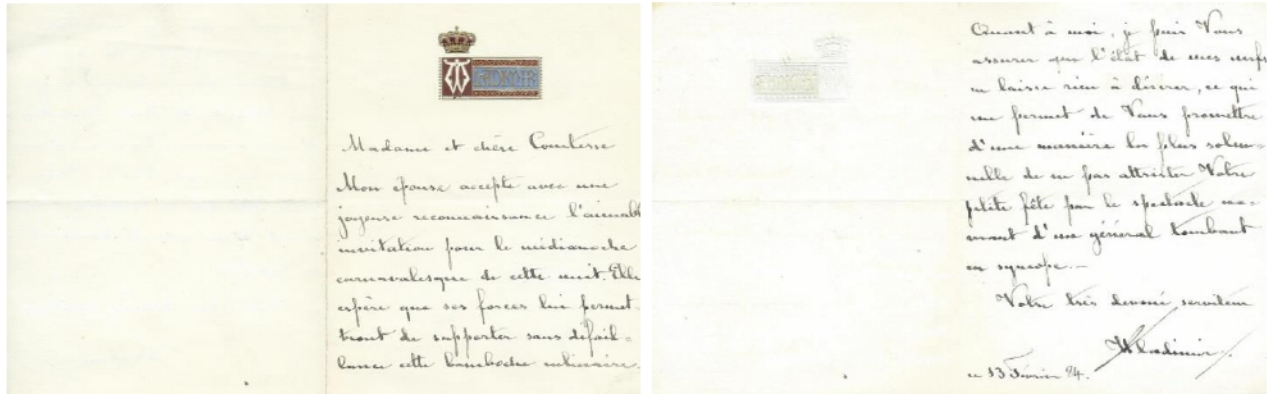 Madame et chère Comtesse
Mon épouse accepte avec une
joyeuse reconnaissance l'aimable
invitation pour le médianoche
carnavalesque de cette nuit. Elle
espère que ses forces lui permet-
tront de supporter sans défail-
lance cette bamboche culinaire.
Quant à moi, je puis Vous
assurer que l'état de mes nerfs
ne laisse rien à désirer, ce qui
me permet de Vous promettre
d'une manière la plus solen-
nelle de ne pas attrister Votre
petite fête par le spectacle na-
vrant d'un général tombant
en syncope.—
Votre très dévoué serviteur
Wladimir.
ce 13 Février 84.